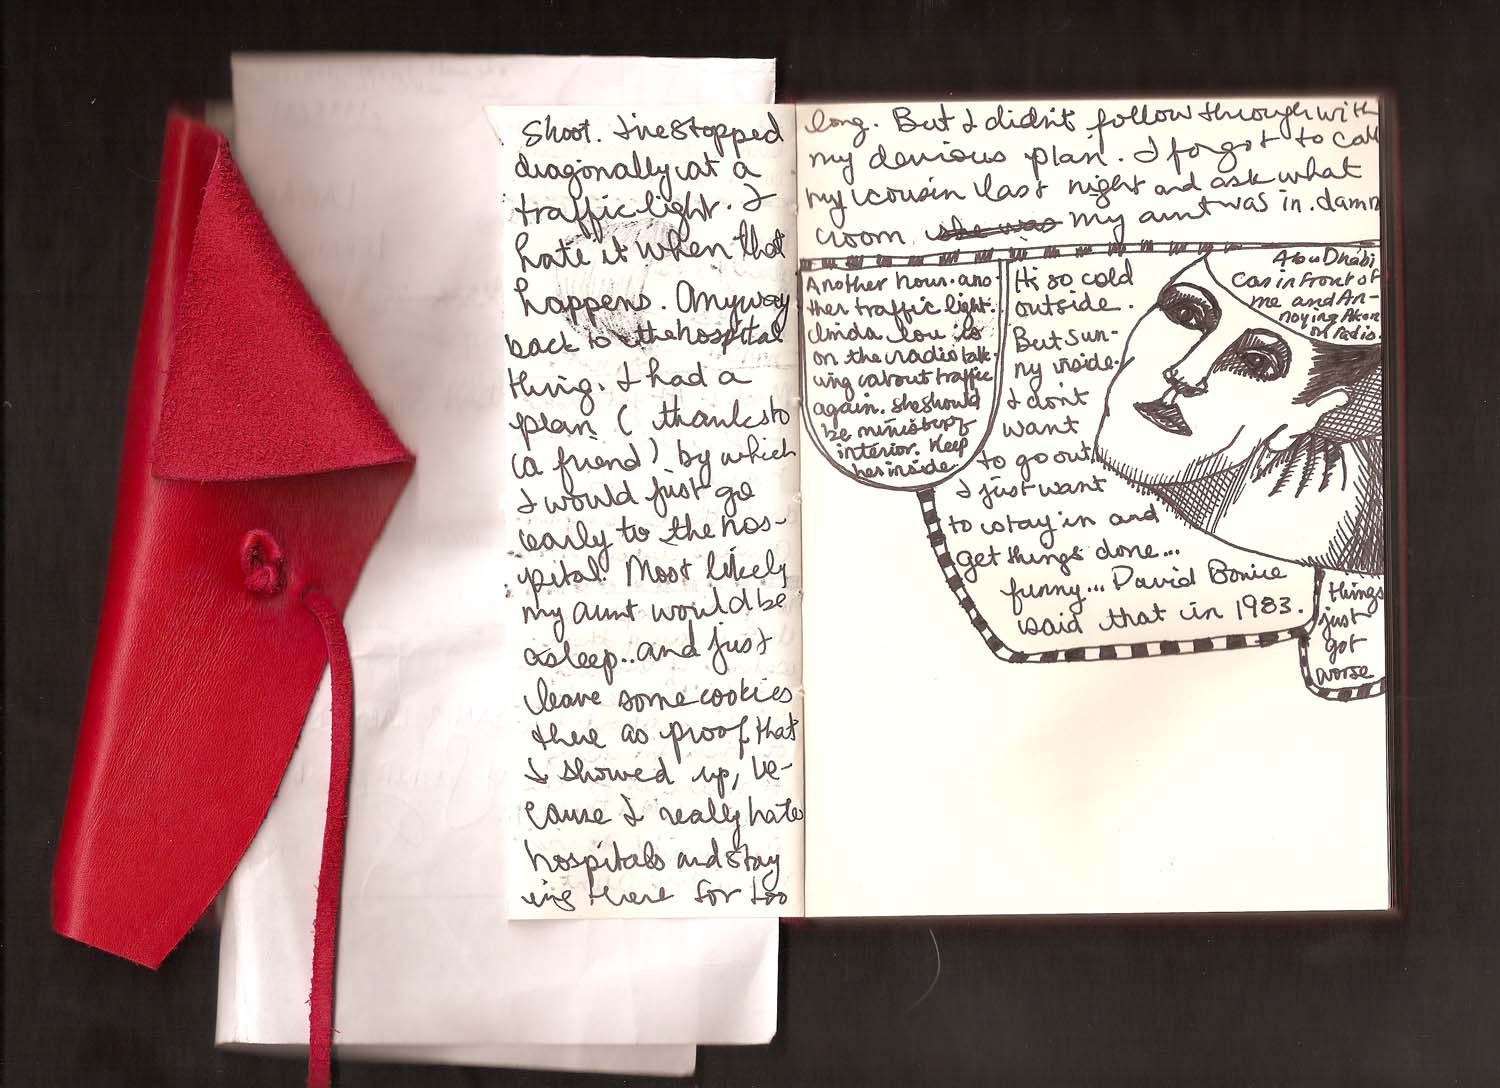 Shoot. I've stopped
diagonally at a
traffic light. I
hate it when that
happens. Anyway
back to the hospital
thing. I had a
plan ( thanks to
(a friend) by which
I would just go
early to the hos-
pital. Most likely
my aunt would be
asleep.. and just
leave some cookies
there as proof that
I showed up, be-
cause I really hate
hospitals and stay
ing there for too
long. But I didn't follow through with
my devious plan. I forgot to call
my cousin last night and ask what
room she was my aunt was in. damn
Another hour. ano
ther traffic light.
linda lou is
on the radio talk-
ing about traffic
again. she should
be minister of
interior. Keep
her inside.
It's so cold
outside.
But sun-
ny inside.
I don't
want
to go out.
I just want
to stay in and
get things done...
funny... David Bowie
said that in 1983.
Abu Dhabi
Car in front of
me and An-
noying Akon
on radio.
things
just
got
worse